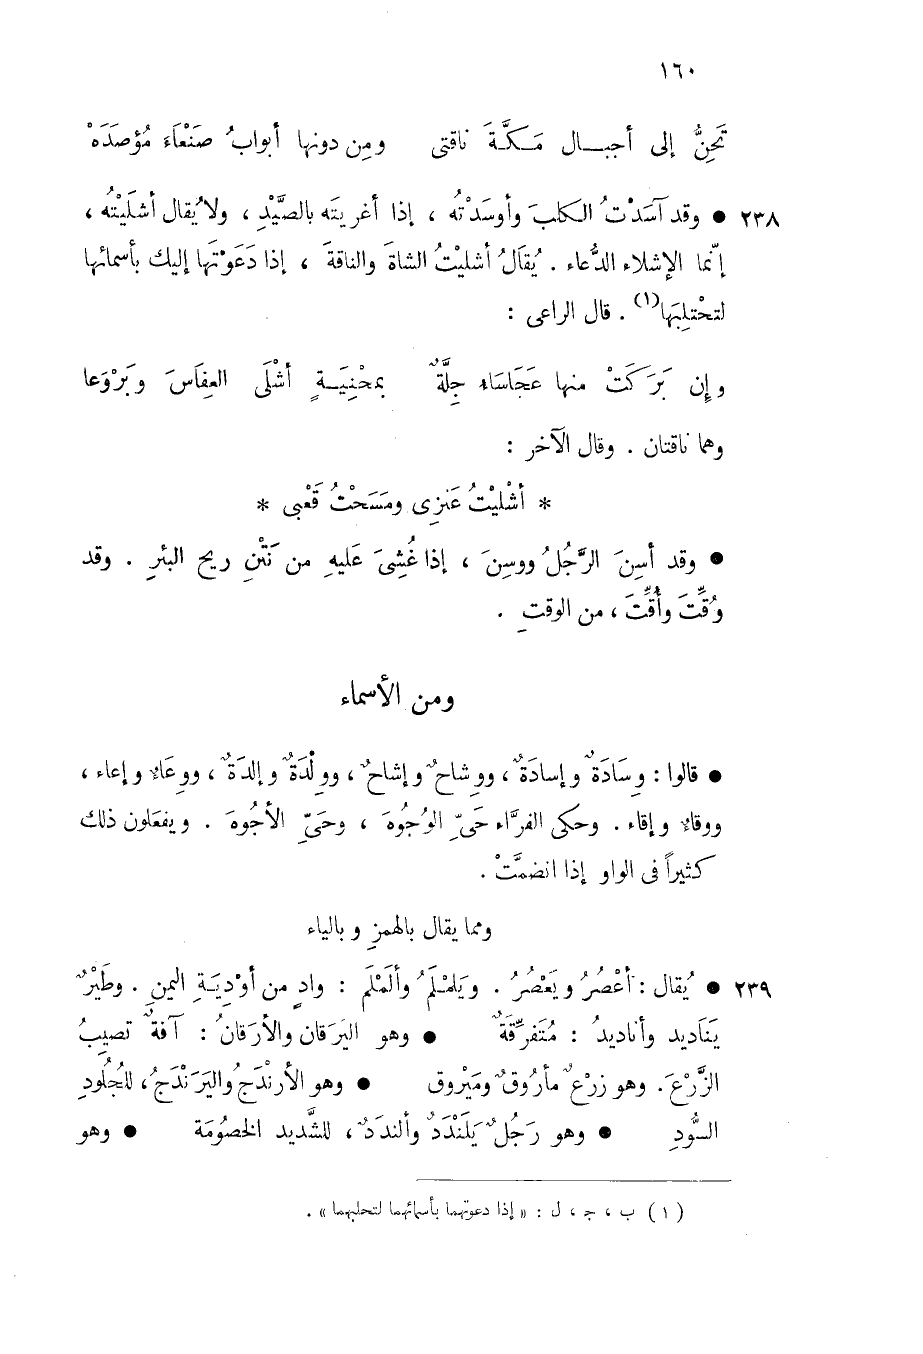 ١٦٠
تَحِنُّ إلى أجبـــال مَـكَّـةَ ناقتى ومِن دونها أبوابُ صَنْعَاءَ مُؤصَدَهْ
٢٣٨ ● وقد آسَدْتُ الكلبَ وأوسَدْتُه ، إذا أغريتَه بالصَّيْدِ ، ولا يُقال أشلَيْتُه ،
إنّما الإشلاء الدُّعاء . يُقَالُ أشليْتُ الشاةَ والناقةَ ، إذا دَعَوْتَها إليك بأسمائها
لتحْتلِبَها(١) . قال الراعى :
وإن بَرَكَتْ منها عَجَاسَاء جِلَّةٌ بمحْنِيَـةٍ أشْلَى العِفَاسَ وبَرْوَعا
وهما ناقتان . وقال الآخر :
* أشْليْتُ عَنزِى ومَسَحْتُ قَعْبى *
● وقد أسِنَ الرَّجُلُ ووسِنَ ، إذا غُشِىَ عَليهِ من نَتْنِ ريح البئرِ . وقد
وُقِّتَ وأُقِّتَ ، من الوقتِ .
ومن الأسماء
● قالوا : وِسَادَةٌ وإسادَةٌ ، ووِشاحٌ وإشاحٌ ، ووِلْدَةٌ وإلدَةٌ ، ووِعَاء وإعاء ،
ووقاء وإقاء . وحكى الفرَّاء حَىِّ الوُجُوهَ ، وحَىِّ الأجُوهَ . ويفعَلون ذلك
كثيراً فى الواو إذا انضمَّتْ .
ومما يقال بالهمزِ وبالياء
٢٣٩ ● يُقال : أعْصُرُ ويَعْصُرُ . ويَلمْـلَمُ وألَمْلَم : وادٍ من أوْدِيَةِ اليمنِ . وطَيْرٌ
يَنَاديد وأناديدُ : مُتَفرِّقَةٌ ● وهو اليَرَقان والأرَقانُ : آفةٌ تصيبُ
الزَّرْعَ . وهو زرْعٌ مأرُوقٌ ومَيْروق ● وهو الأرنْدَجُ واليَرَنْدَجُ ، للجُلُودِ
السُّودِ ● وهو رَجُلٌ يَلَنْدَدٌ وألندَدٌ ، للشَّديد الخصُومَة ● وهو
(١) ب ، ج ، ل : « إذا دعوتهما بأسمائهما لتحلبهما » .